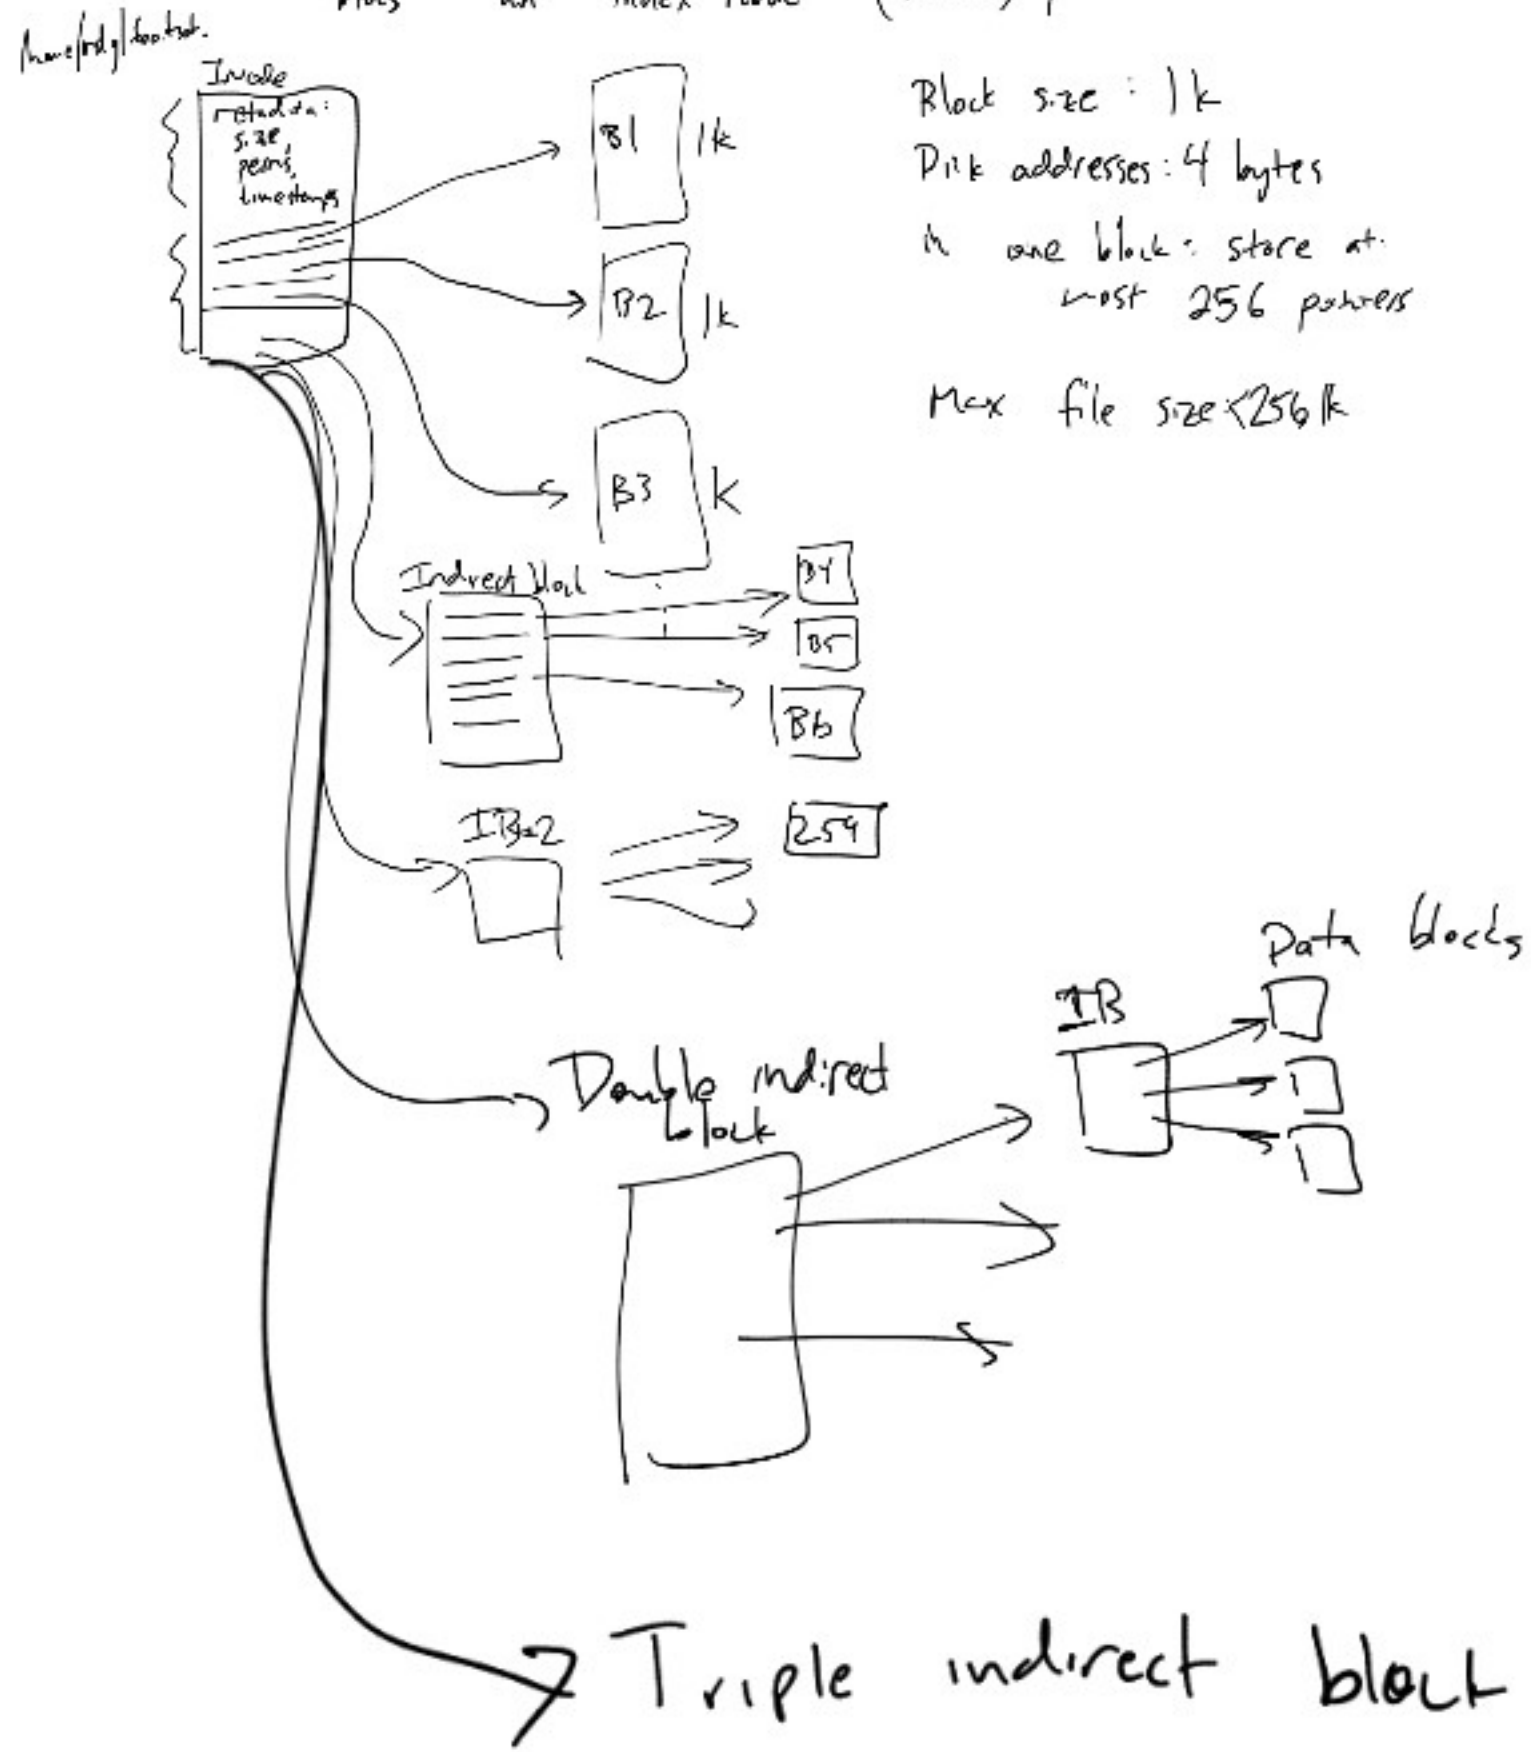 an index node
Inode
metadata:
size,
perms,
timestamps
B1 1k
B2 1k
B3 k
Block size : 1k
Disk addresses : 4 bytes
in one block : store at
most 256 pointers
Max file size : <256 1k
Indirect block
B4
B5
B6
IB 2
254
Data blocks
IB
Double indirect
block
Triple indirect block